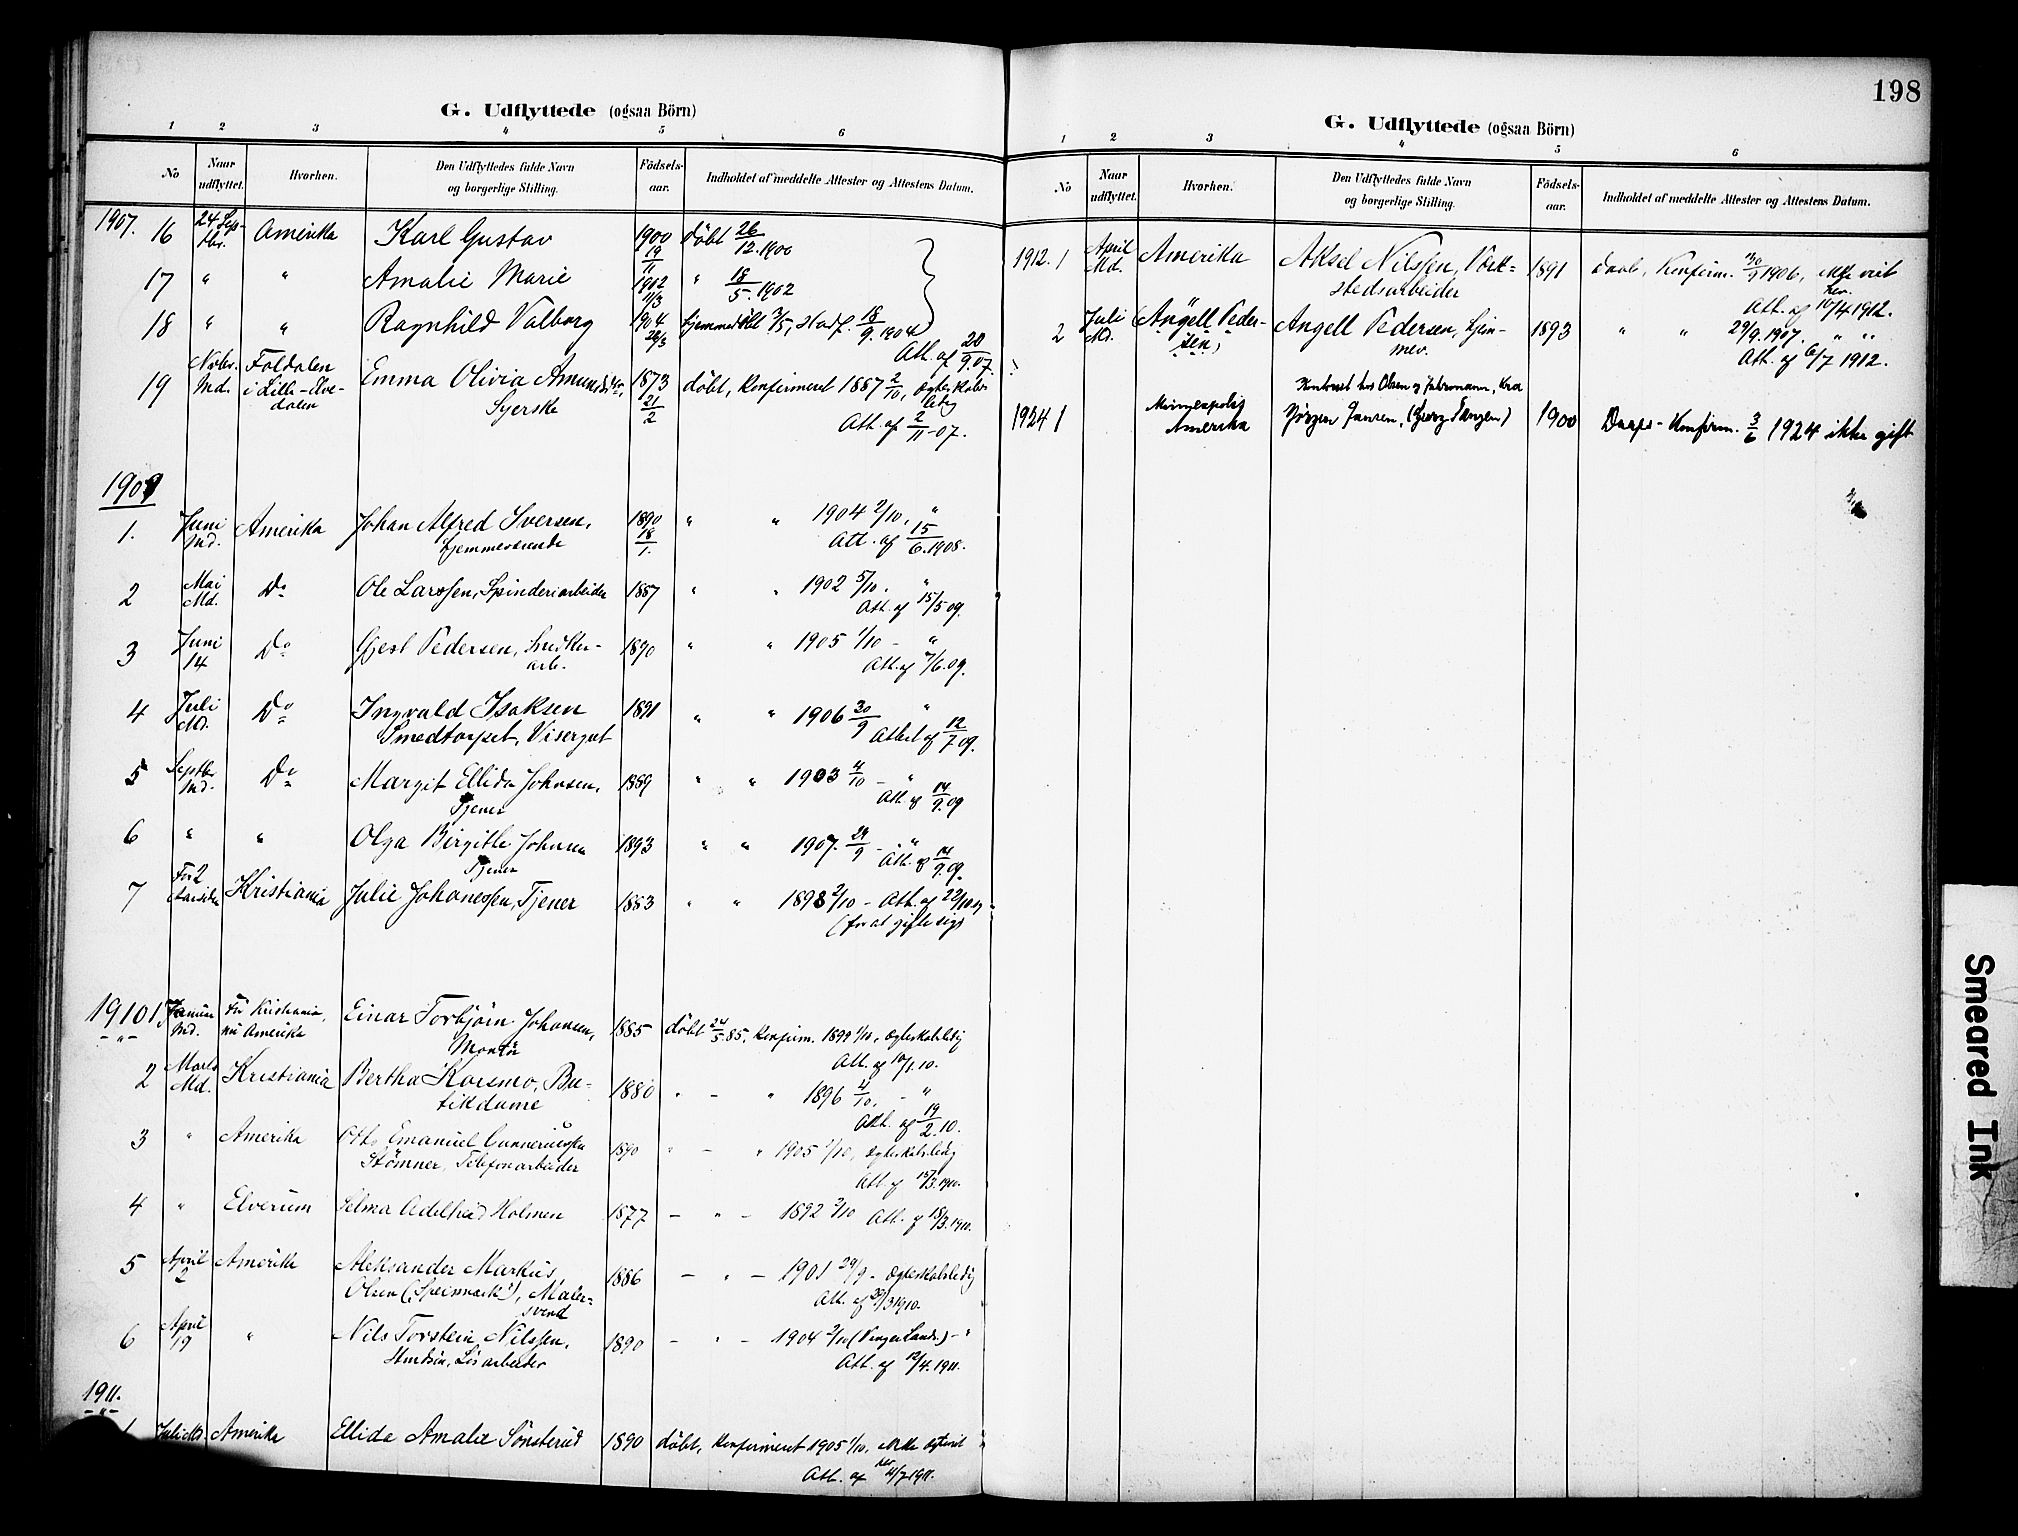 G. Udflyttede (ogsaa Börn)
1 2 3 4 5 6
No Naar udflyttet. Hvorhen. Den Udflyttedes fulde Navn og borgerlige Stilling. Födsels-aar. Indholdet af meddelte Attester og Attestens Datum.
1907. 16 24 Sep-tbr. Amerika Karl Gustav 1900 19/11 döbt 26/12.1900
17 " " Amalie Marie 1902 11/3 " 18/5.1902
18 " " Ragnhild Valborg 1904 26/3 hjemmedöbt 3/5, Stadf. 18/9.1904
Att. af 20/9.07.
19 Novbr. Md. Foldalen i Lille-Elve-dalen Emma Olivia Amundsen, Syerske 1873 21/2 döbt, konfirmeret 1887 2/10, Egteskabs-
Att. af 2/11-07.
1909
1. Juni Md. Amerika Johan Alfred Iversen, hjemmeværende 1890 18/1. " " 1904 2/10, "
Att. af 15/6.1908.
2 Mai Md. Do Ole Larssen, Spinderiarbeider 1887 " " 1902 5/10. "
Att. af 15/5 09.
3 Juni 14 Do Gjest Pedersen, Snedker-arb. 1890 " " 1905 1/10 - "
Att. af 7/6.09.
4 Juli Md. Do Ingvald Isaksen Smedtorpet, Visergut 1891 " " 1906 30/9 "
Attest af 12/7 09.
5 Septbr. Md. Do Margit Ellida Johnsen, Tjener 1889 " " 1903 4/10 - "
Att. af 14/9.09
6 " " Olga Birgitte Johnsen Tjener 1893 " " 1907. 29/9 - "
Att. af 14/9.09.
7 For 2 Aar siden Kristiania Julie Johanessen, Tjener 1883 " " 1898 2/10 - Att. af 22/10 09
(for at gifte sig)
1910 1 Januar Md. För Kristiania, nu Amerika Einar Torbjörn Johansen, Montör 1885 döbt 24/5.85, konfirm. 1899 1/10, Egteskabsledig
Att. af 10/1.10.
2 Marts Md. Kristiania Bertha Korsmo, Bu-tikdame 1880 " - " 1896 4/10. - "
Att. af 19/2.10.
3 " Amerika Otto Emanuel Gunneriussen Stømner, Telefonarbeider 1890 " - " 1905 1/10, Egteskabsledig
Att. af 15/3.1910.
4 " Elverum Selma Adelheid Holmen 1877 - " - 1892 2/10 Att. af 18/3.1910.
5 April 2 Amerika Aleksander Markus Olsen ("Speinmark"), Maler-svend 1886 - " - 1901 29/9 - Egteskabsledig
Att. af 29/3 1910.
6 April 19 " Nils Torstein Nilssen, 1890 - " - 1904 2/10 (Vinger Lands.) - "
Att. af 12/4.1911.
1911.
1 Juli Md. Amerika Ellida Amalie Sönsterud 1890 döbt, konfirmeret 1905 1/10, ikke egteviet her
Att. af 11/7 1911.
198
G. Udflyttede (ogsaa Börn)
1 2 3 4 5 6
No Naar udflyttet. Hvorhen. Den Udflyttedes fulde Navn og borgerlige Stilling. Födsels-aar. Indholdet af meddelte Attester og Attestens Datum.
1912. 1 April Md. Amerika Aksel Nilssen, Værk-stedsarbeider 1891 Daab, Konfirm. 30/9 1906, ikke viet her.
Att. af 10/4 1912.
2 Juli Md. (Angell Peder-sen) Angell Pedersen, hjem-mev. 1893 " " 29/9.1907. " "
Att. af 6/7 1912.
1924 1 Minneapolis Amerika Kontorist hos Olsen
Jørgen Jansen, 1900 Daaps- Konfirm. 3/6 1924 ikke gift
Smeared Ink